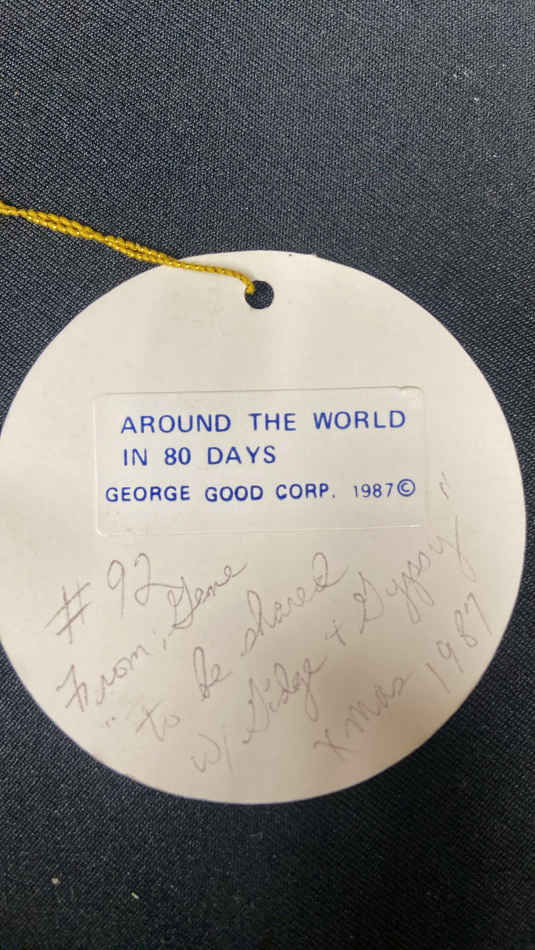 AROUND THE WORLD
IN 80 DAYS
GEORGE GOOD CORP. 1987©
# 92
From: Gene
"to be shared
w/ Gidge & Gypsy"
Xmas 1987